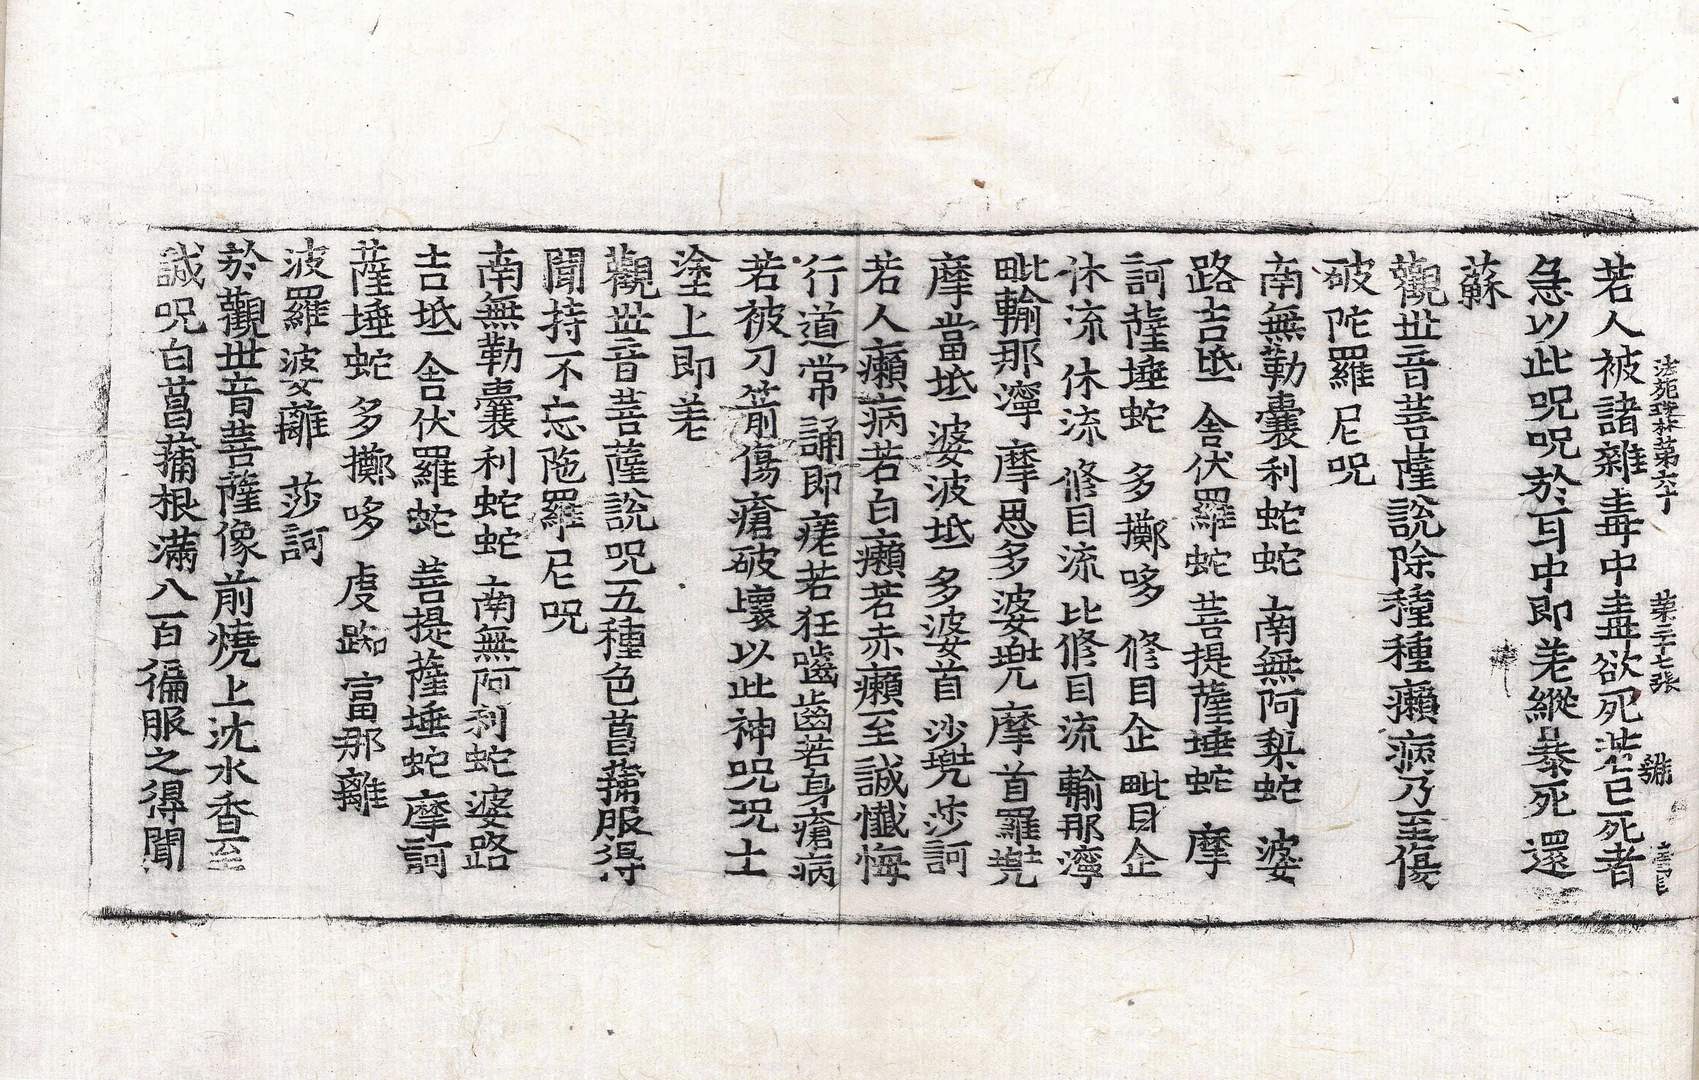 法苑珠林第六十 第三十七張
若人被諸雜毒中毒欲死若已死者
急以此呪呪於耳中即差縱暴死還
蘇
觀世音菩薩說除種種癩病乃至傷
破陀羅尼呪
南無勒囊利蛇蛇 南無阿梨蛇 婆
路吉坻 舍伏羅蛇 菩提薩埵蛇 摩
訶薩埵蛇 多擲哆 修目企 毗目企
休流 休流 修目流 比修目流 輸那濘
毗輸那濘 摩思多婆兜 摩首羅兜
摩當坻 婆波坻 多婆首 沙兜 莎訶
若人癩病若白癩若赤癩至誠懺悔
行道常誦即瘥若狂嚙齒若身瘡病
若被刀箭傷瘡破壞以此神呪呪土
塗上即差
觀世音菩薩說呪五種色菖蒲服得
聞持不忘陁羅尼呪
南無勒囊利蛇蛇 南無阿利蛇婆路
吉坻 舍伏羅蛇 菩提薩埵蛇 摩訶
薩埵蛇 多擲哆 富那離
波羅婆離 莎訶
於觀世音菩薩像前燒上沈水香至
誠呪白菖蒲根滿八百徧服之得聞